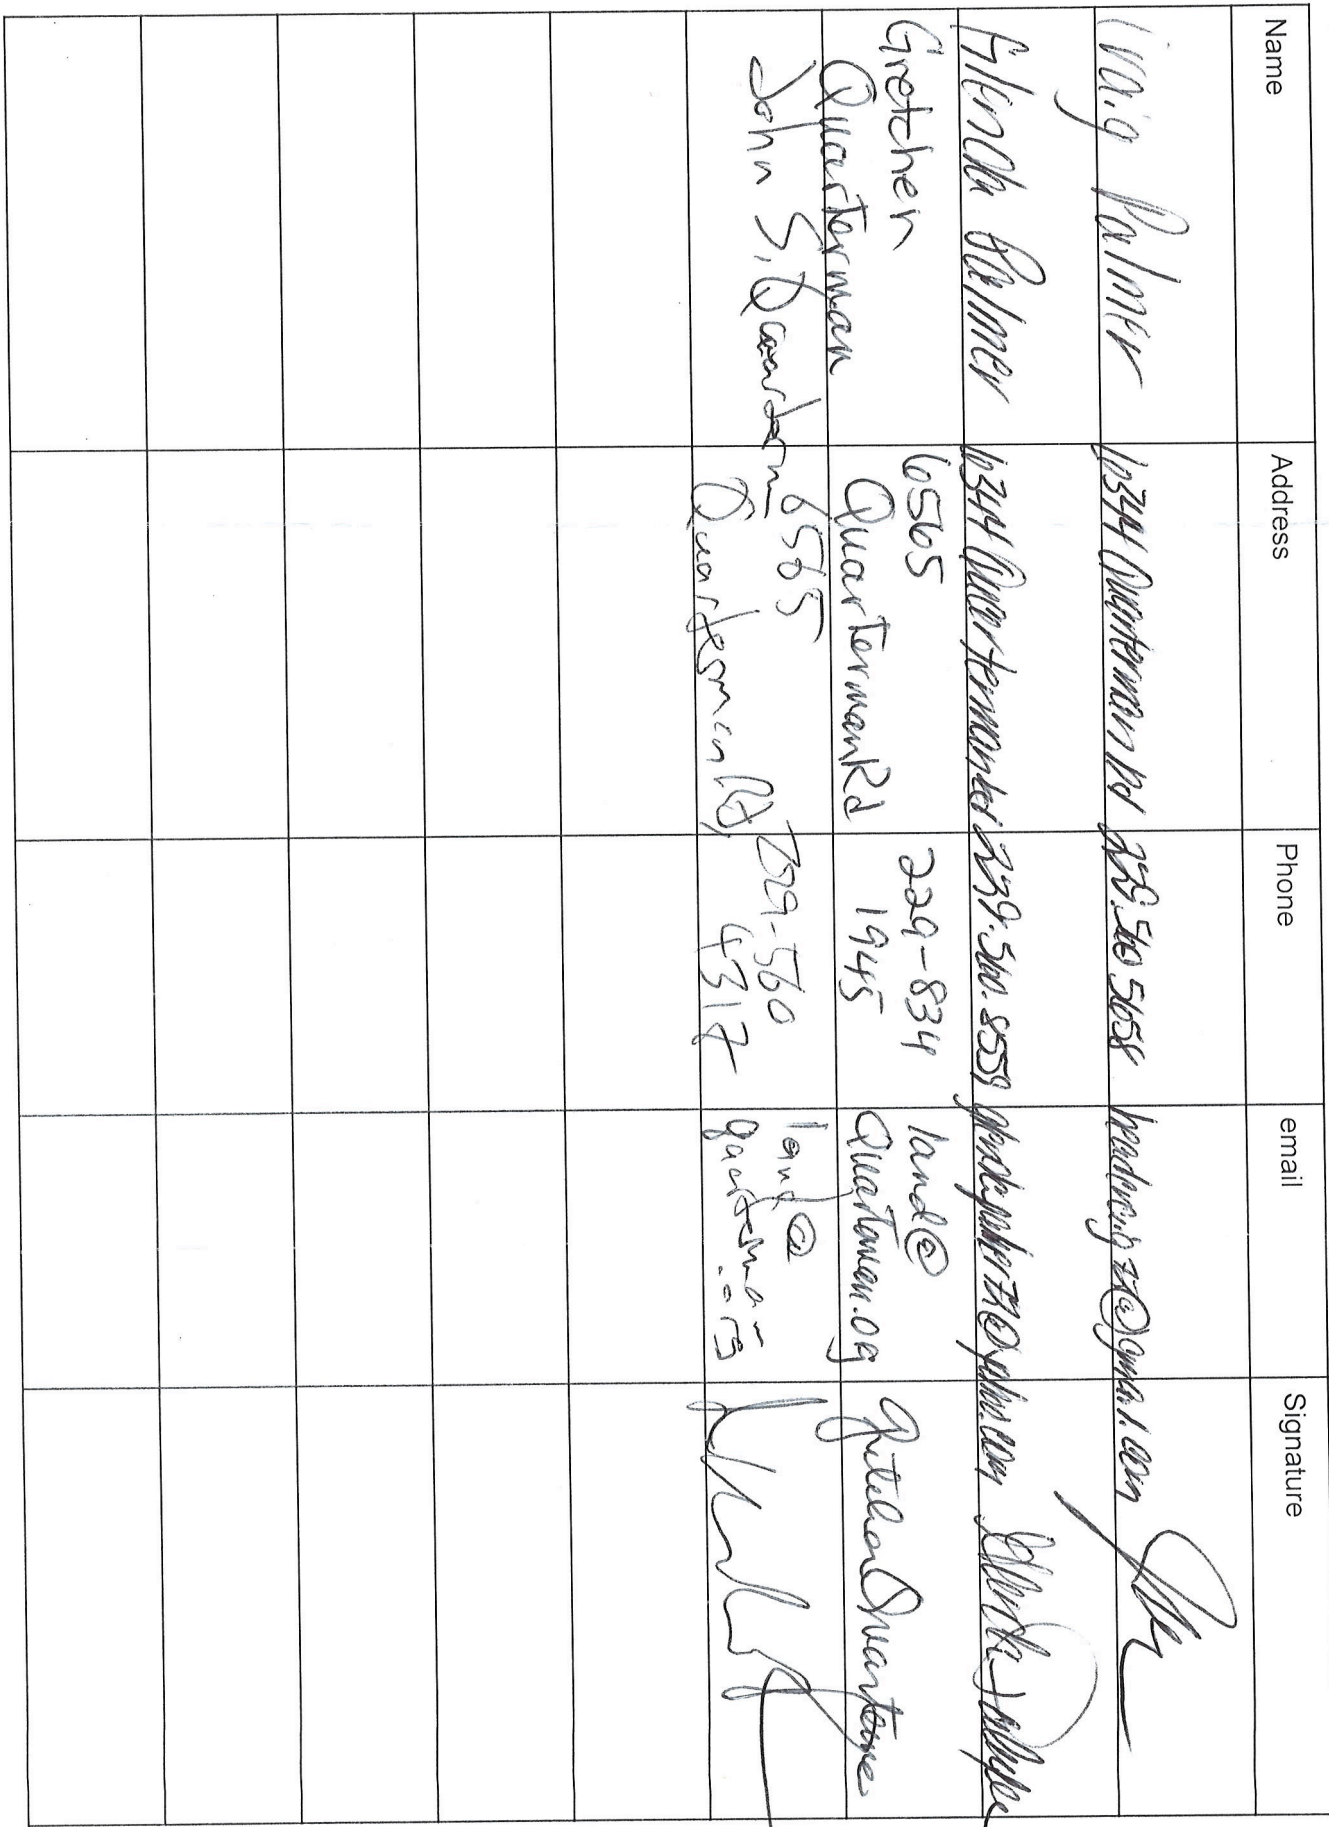 Name Address Phone email Signature
Craig Palmer 6344 Quarterman Rd 229.560.5658
Glenda Palmer 6344 Quarterman Rd 229.560.8559
Gretchen
Quarterman
6565
Quarterman Rd
229-834
1945
land@
Quarterman.org
Gretchen Quarterman
John S. Quarterman
6565
Quarterman Rd,
229-560
4317
land@
quarterman
.org